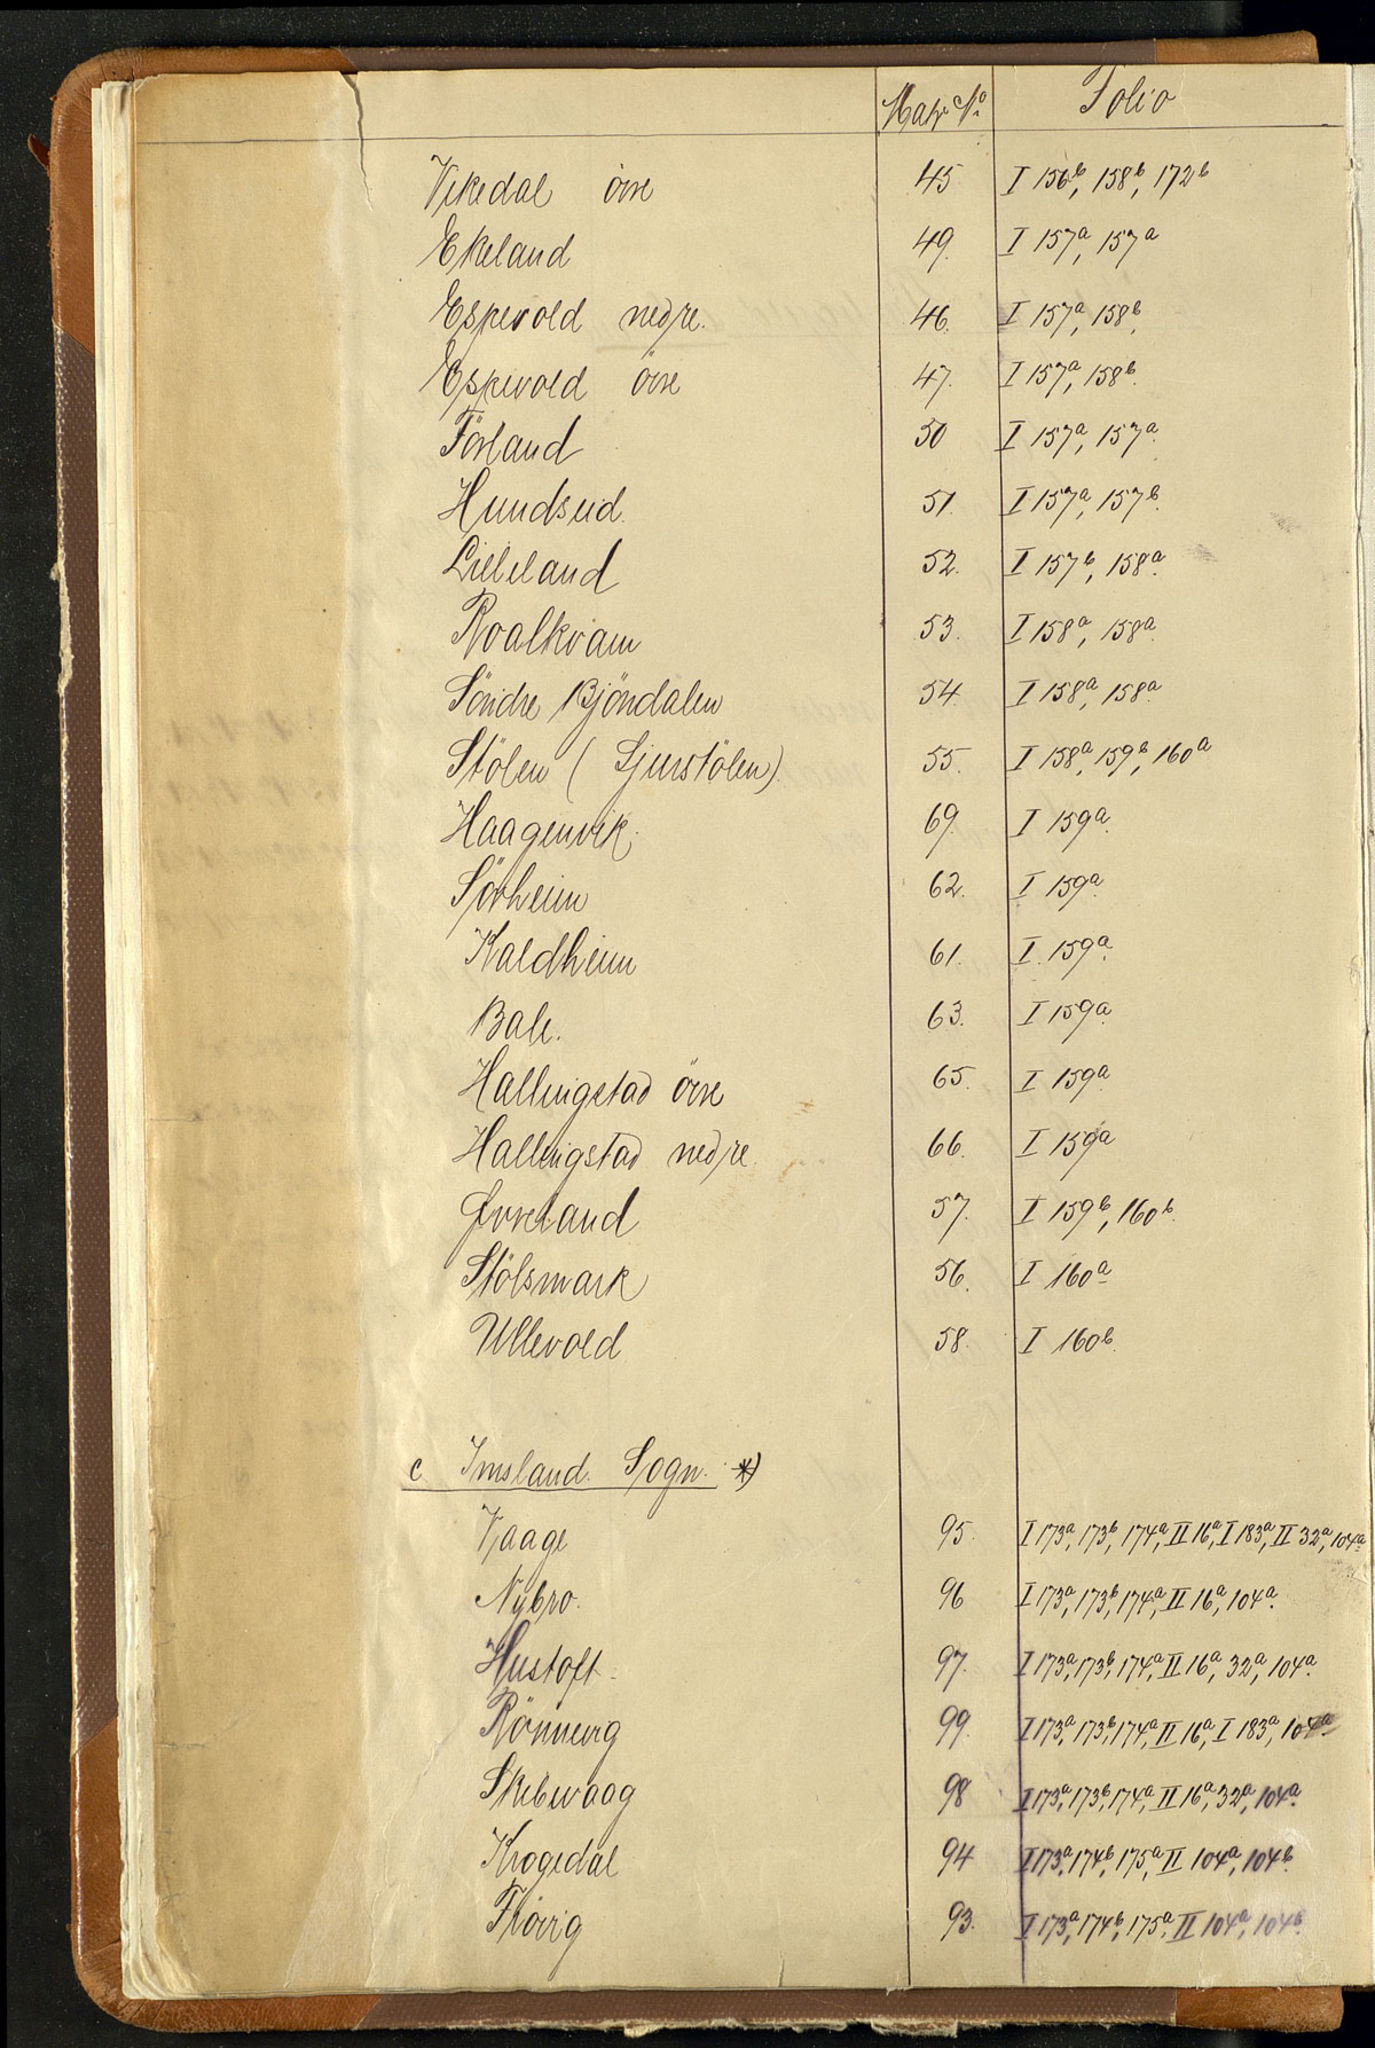 Matr. No Folio
Vikedal övre 45 I 156b, 158b, 172b
Ekeland 49. I 157a, 157a
Espevold nedre. 46. I 157a, 158b.
Espevold övre 47. I 157a, 158b.
Förland 50 I 157a, 157a.
Hundseid. 51. I 157a, 157b.
Lieleland 52. I 157b, 158a.
Roalkvam 53. I 158a, 158a.
Söndre Bjöndalen 54. I 158a, 158a.
Stölen (Sjurstölen). 55. I 158a, 159b, 160a
Haagenvik. 69. I 159a.
Sörheim 62. I 159a.
Kaldheim 61. I. 159a.
Bale. 63. I 159a.
Hallingstad övre 65. I 159a.
Hallingstad nedre. 66. I 159a
Øvreland 57. I 159b, 160b.
Stölsmark 56. I 160a
Ullevold 58. I 160b.
c Imsland. Sogn. *)
Vaage 95. I 173a, 173b, 174a, II 16a, I 183a, II 32a, 104a
Nybro. 96 I 173a, 173b, 174a, II 16a, 104a.
Hustoft. 97. I 173a, 173b, 174a, II 16a, 32a, 104a.
Rönnevig 99. I 173a, 173b, 174a, II 16a, I 183a, 104a
Skibevaag 98 I 173a, 173b, 174a, II 16a, 32a, 104a.
Krogedal 94 I 173a, 174b, 175a, II 104a, 104b.
Fiövig 93. I 173a, 174b, 175a, II 104a, 104b.